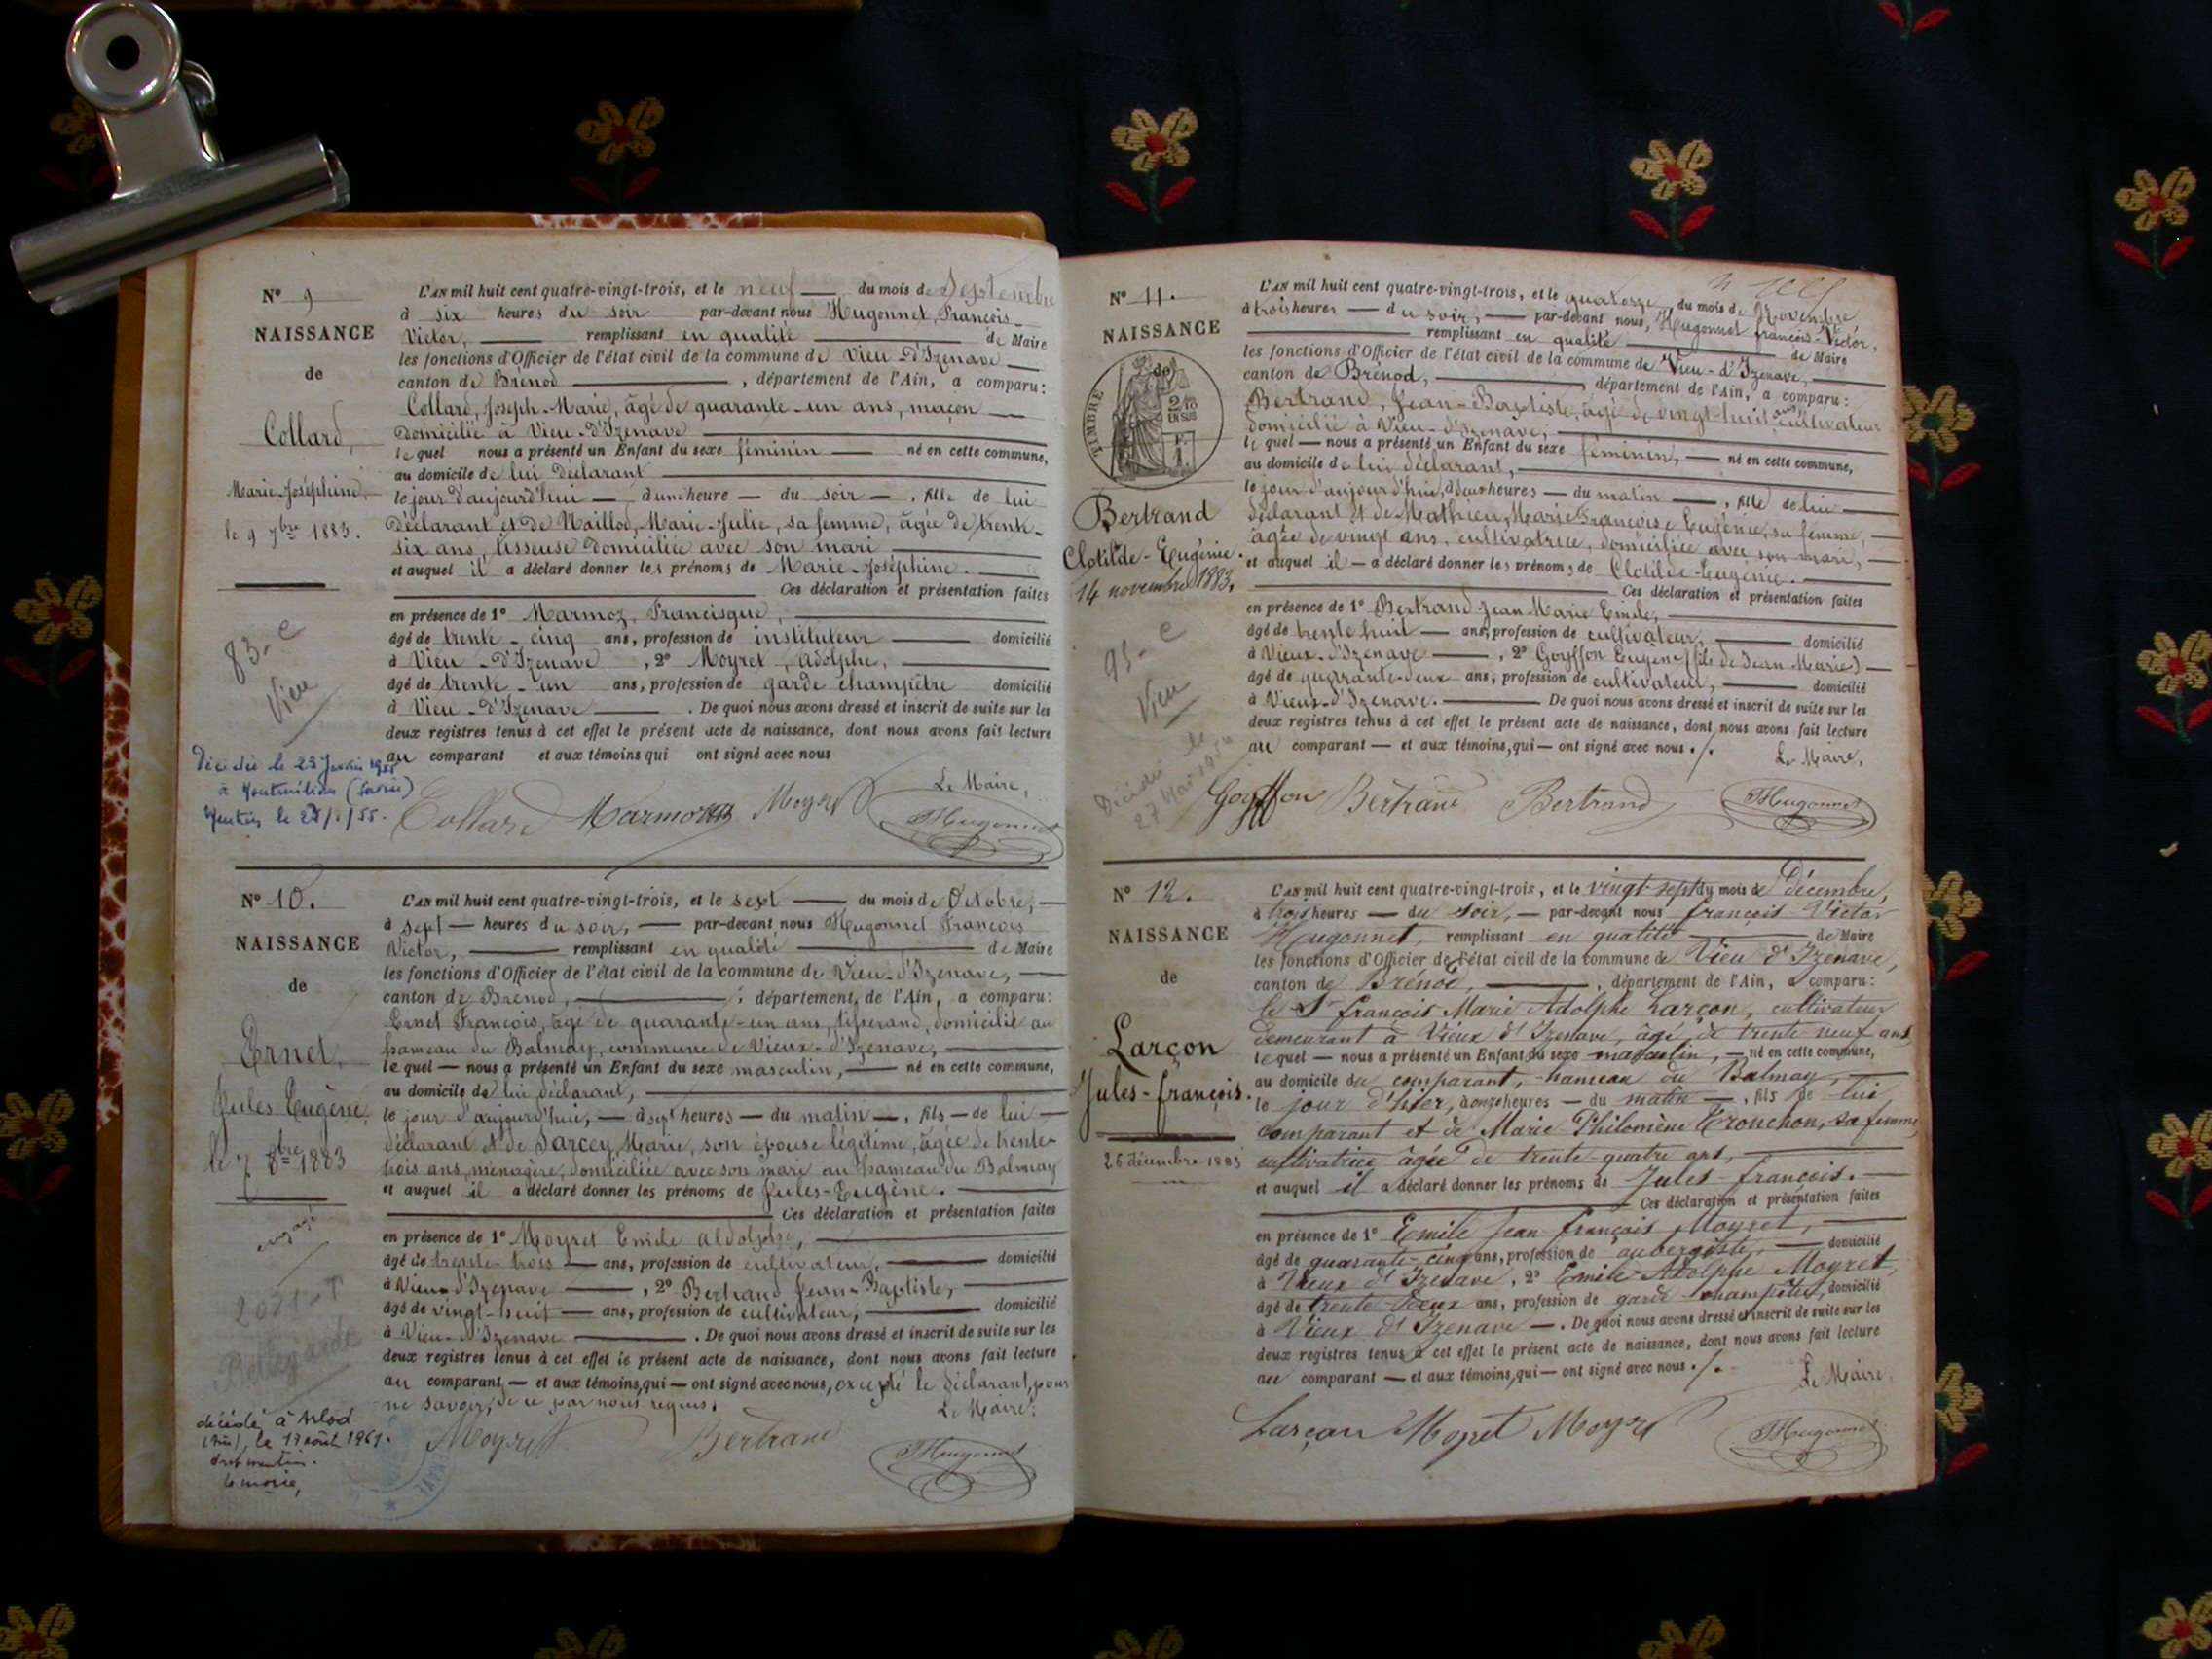 N° 9
NAISSANCE
de
Collard,
Marie-Joséphine,
le 9 7bre 1883.
83-C
Vieu
Décédée le 23 Janvier 1955
à Montmélian (Savoie)
L'AN mil huit cent quatre-vingt-trois, et le neuf du mois de Septembre
à six heures du soir par-devant nous Hugonnet, François-
Victor, remplissant en qualité de Maire
les fonctions d'Officier de l'état civil de la commune de Vieu-d'Izenave
canton de Brénod, département de l'Ain, a comparu:
Collard, Joseph-Marie, âgé de quarante-un ans, maçon
domicilié à Vieu-d'Izenave
lequel nous a présenté un Enfant du sexe féminin né en cette commune,
au domicile de lui déclarant
le jour d'aujourd'hui à une heure du soir, fille de lui
déclarant et de Maillod, Marie-Julie, sa femme, âgée de trente-
six ans, tisseuse domiciliée avec son mari
et auquel il a déclaré donner les prénoms de Marie-Joséphine.
Ces déclaration et présentation faites
en présence de 1° Marmoz, Francisque,
âgé de trente-cinq ans, profession de instituteur domicilié
à Vieu-d'Izenave, 2° Moyret, Adolphe,
âgé de trente-un ans, profession de garde champêtre domicilié
à Vieu-d'Izenave. De quoi nous avons dressé et inscrit de suite sur les
deux registres tenus à cet effet le présent acte de naissance, dont nous avons fait lecture
au comparant et aux témoins qui ont signé avec nous
Le Maire,
Collard Marmoz Moyret Hugonnet
N° 10.
NAISSANCE
de
Ernet,
Jules Eugène,
le 7 8bre 1883
Bellegarde
décédé à Arlod
(Ain), le 17 août 1961.
dont mention.
le maire,
L'AN mil huit cent quatre-vingt-trois, et le sept du mois de Octobre,
à sept heures du soir, par-devant nous Hugonnet François
Victor, remplissant en qualité de Maire
les fonctions d'Officier de l'état civil de la commune de Vieu-d'Izenave,
canton de Brénod, département de l'Ain, a comparu:
Ernet François, âgé de quarante-un ans, tisserand, domicilié au
hameau du Balmay, commune de Vieux-d'Izenave,
lequel nous a présenté un Enfant du sexe masculin, né en cette commune,
au domicile de lui déclarant,
le jour d'aujourd'hui, à sept heures du matin, fils de lui
déclarant et de Sarcey, Marie, son épouse légitime, âgée de trente-
trois ans, ménagère, domiciliée avec son mari au hameau du Balmay
et auquel il a déclaré donner les prénoms de Jules-Eugène.
Ces déclaration et présentation faites
en présence de 1° Moyret Emile Aldolphe,
âgé de trente-trois ans, profession de cultivateur, domicilié
à Vieu-d'Izenave, 2° Bertrand Jean-Baptiste,
âgé de vingt-huit ans, profession de cultivateur, domicilié
à Vieu-d'Izenave. De quoi nous avons dressé et inscrit de suite sur les
deux registres tenus à cet effet le présent acte de naissance, dont nous avons fait lecture
au comparant et aux témoins, qui ont signé avec nous, excepté le déclarant, pour
ne savoir, de ce par nous requis.
Le Maire:
Moyret Bertrand Hugonnet
N° 11.
NAISSANCE
de
TIMBRE
2/10
EN SUS
Bertrand
Clotilde-Eugénie.
14 novembre 1883.
95-C
Vieu
Décédée le
27 Mai
L'AN mil huit cent quatre-vingt-trois, et le quatorze, du mois de Novembre
à trois heures du soir, par-devant nous, Hugonnet françois-Victor,
remplissant en qualité de Maire
les fonctions d'Officier de l'état civil de la commune de Vieu-d'Izenave,
canton de Brénod, département de l'Ain, a comparu:
Bertrand, Jean-Baptiste, âgé de vingt huit ans, cultivateur
domicilié à Vieu-d'Izenave,
lequel nous a présenté un Enfant du sexe féminin, né en cette commune,
au domicile de lui déclarant,
le jour d'aujourd'hui, à deux heures du matin, fille de lui
déclarant et de Mathieu, Marie Françoise Eugénie, sa femme,
âgée de vingt ans, cultivatrice, domiciliée avec son mari,
et auquel il a déclaré donner les prénoms de Clotilde-Eugénie.
Ces déclaration et présentation faites
en présence de 1° Bertrand Jean-Marie Emile,
âgé de trente huit ans, profession de cultivateur, domicilié
à Vieux-d'Izenave, 2° Goyffon Eugène (fils de Jean-Marie)
âgé de quarante-deux ans, profession de cultivateur, domicilié
à Vieux-d'Izenave. De quoi nous avons dressé et inscrit de suite sur les
deux registres tenus à cet effet le présent acte de naissance, dont nous avons fait lecture
au comparant et aux témoins, qui ont signé avec nous.
Le Maire,
Goyffon Bertrand Bertrand Hugonnet
N° 12.
NAISSANCE
de
Larçon
Jules-françois.
26 décembre 1883
L'AN mil huit cent quatre-vingt-trois, et le vingt-sept du mois de Décembre,
à trois heures du soir, par-devant nous françois Victor
Hugonnet, remplissant en qualité de Maire
les fonctions d'Officier de l'état civil de la commune de Vieu d'Izenave,
canton de Brénod, département de l'Ain, a comparu:
le Sr françois Marie Adolphe Larçon, cultivateur
demeurant à Vieux d'Izenave, âgé de trente neuf ans
lequel nous a présenté un Enfant du sexe masculin, né en cette commune,
au domicile du comparant, hameau du Balmay,
le jour d'hier, à onze heures du matin, fils de lui
comparant et de Marie Philomène Tronchon, sa femme,
cultivatrice âgée de trente-quatre ans,
et auquel il a déclaré donner les prénoms de Jules-françois.
Ces déclaration et présentation faites
en présence de 1° Emile Jean françois Moyret,
âgé de quarante-cinq ans, profession de aubergiste, domicilié
à Vieux d'Izenave, 2° Emile Adolphe Moyret,
âgé de trente deux ans, profession de garde champêtre, domicilié
à Vieux d'Izenave. De quoi nous avons dressé et inscrit de suite sur les
deux registres tenus à cet effet le présent acte de naissance, dont nous avons fait lecture
au comparant et aux témoins, qui ont signé avec nous.
Le Maire,
Larçon Moyret Moyret Hugonnet